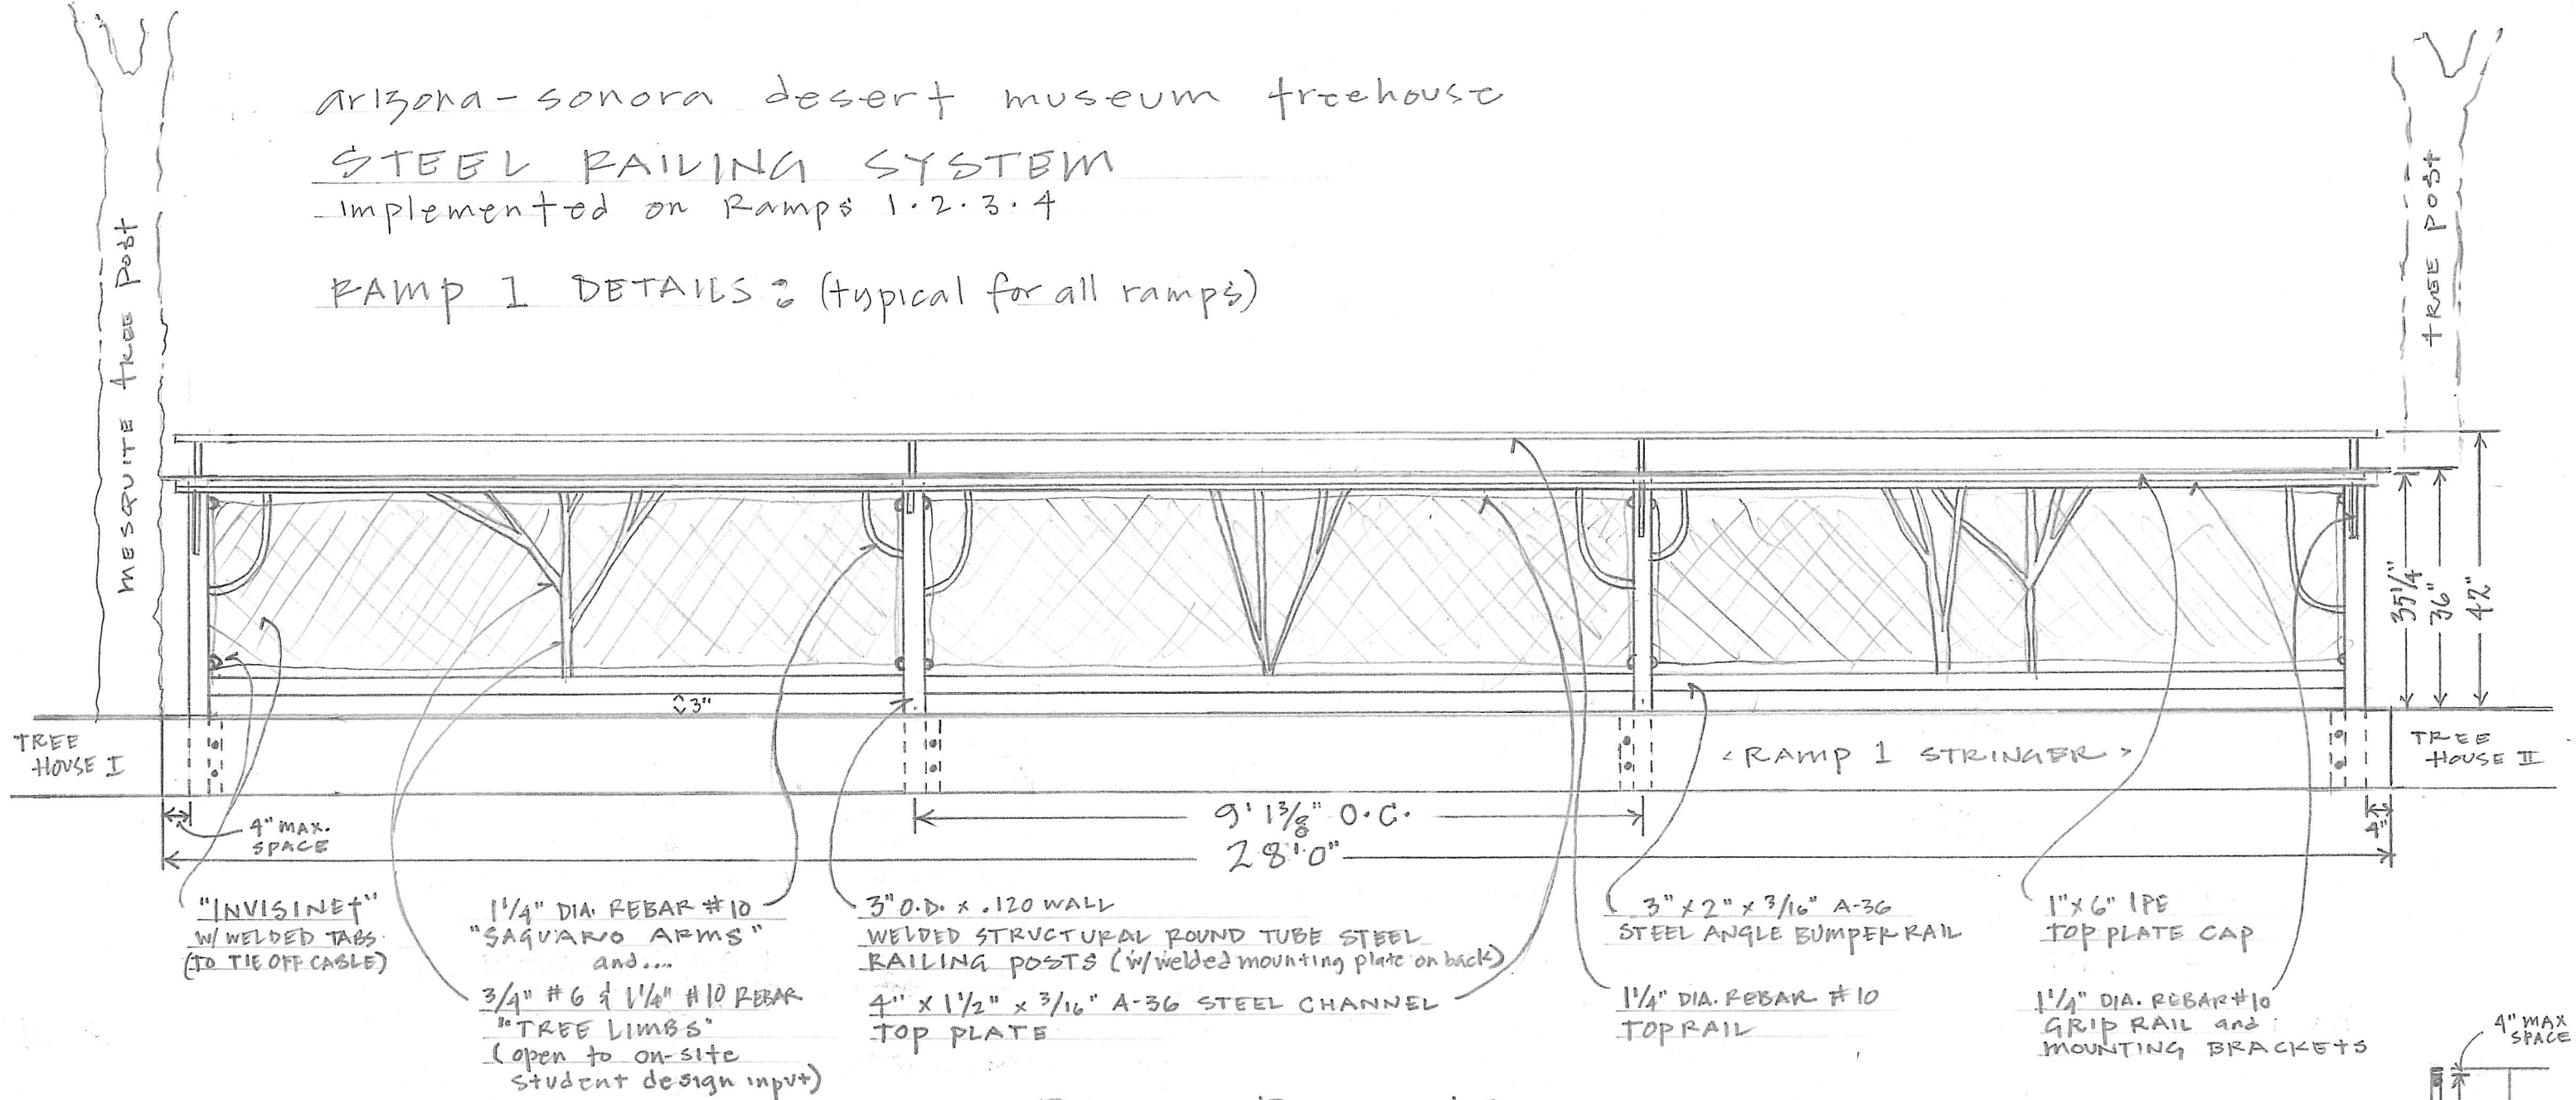 arizona-sonora desert museum treehouse
STEEL RAILING SYSTEM
implemented on Ramps 1·2·3·4
RAMP 1 DETAILS: (typical for all ramps)
MESQUITE TREE POST
TREE POST
35 1/4"
36"
42"
3"
TREE
HOUSE I
< RAMP 1 STRINGER >
TREE
HOUSE II
4" MAX.
SPACE
9' 1 3/8" O.C.
28'0"
4"
"INVISINET"
W/ WELDED TABS
(TO TIE OFF CABLE)
1 1/4" DIA. REBAR #10
"SAGUARO ARMS"
and....
3/4" #6 & 1 1/4" #10 REBAR
"TREE LIMBS"
(open to on-site
student design input)
3" O.D. x .120 WALL
WELDED STRUCTURAL ROUND TUBE STEEL
RAILING POSTS (w/welded mounting plate on back)
4" x 1 1/2" x 3/16" A-36 STEEL CHANNEL
TOP PLATE
3" x 2" x 3/16" A-36
STEEL ANGLE BUMPER RAIL
1 1/4" DIA. REBAR #10
TOP RAIL
1" x 6" IPE
TOP PLATE CAP
1 1/4" DIA. REBAR #10
GRIP RAIL and
MOUNTING BRACKETS
4" MAX
SPACE